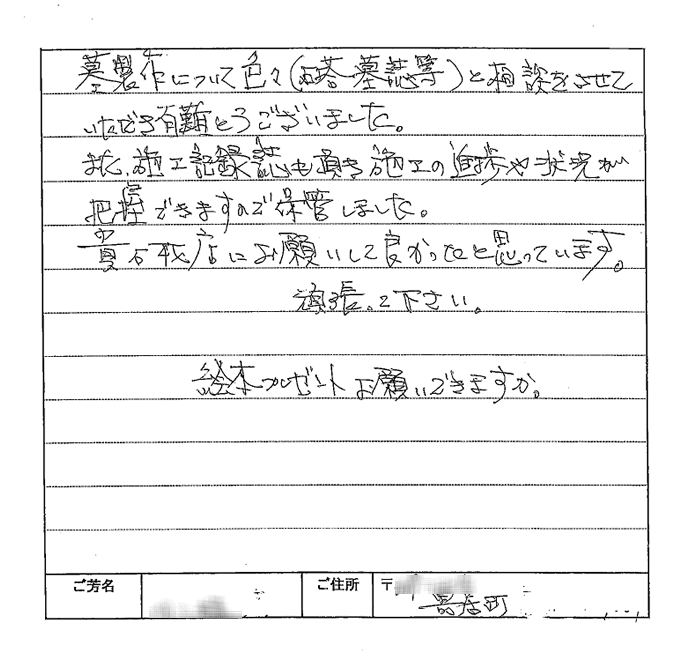 墓製作について色々(石塔、墓誌等)と相談をさせて
いただき有難とうございました。
また、施工記録誌も頂き施工の進捗や状況が
把握できますので保管しました。
貴石材店にお願いして良かったと思っています。
頑張って下さい。
絵本プレゼントお願いできますか。
ご芳名
ご住所 〒
寄居町